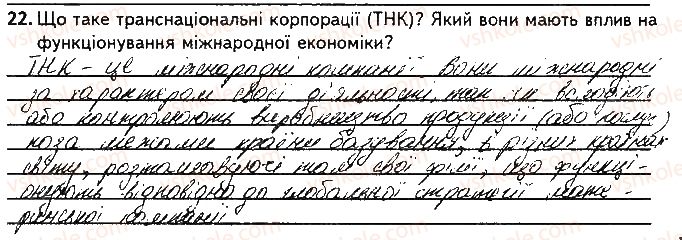 22. Що таке транснаціональні корпорації (ТНК)? Який вони мають вплив на
функціонування міжнародної економіки?
ТНК – це міжнародні компанії вони міжнародні
за характером своєї діяльності, так як володіють
або контролюють виробництво продукції (або
поза межами країни базування, в різних країнах
світу, розташовуючі там свої філії, що функці-
онують відповідно до глобальної стратегії мате-
ринської компанії